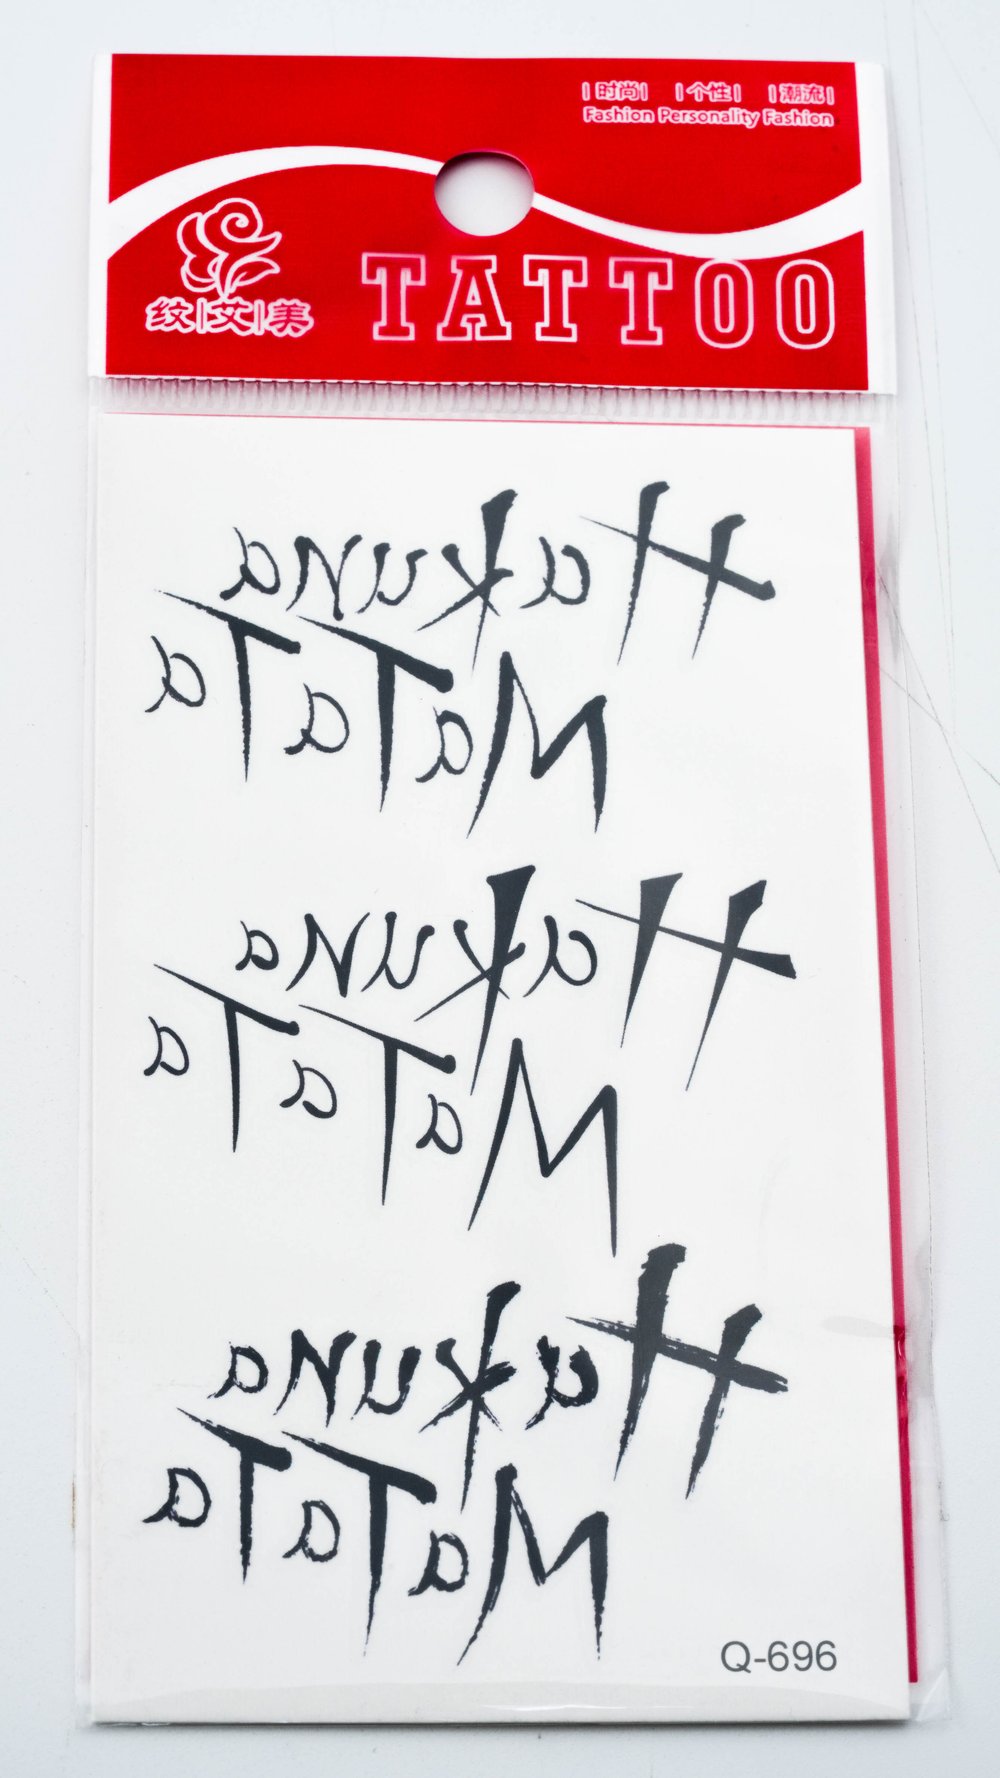 |时尚| |个性| |潮流|
Fashion Personality Fashion
纹|艾|美
TATTOO
Hakuna
MaTaTa
Hakuna
MaTaTa
Hakuna
MaTaTa
Q-696